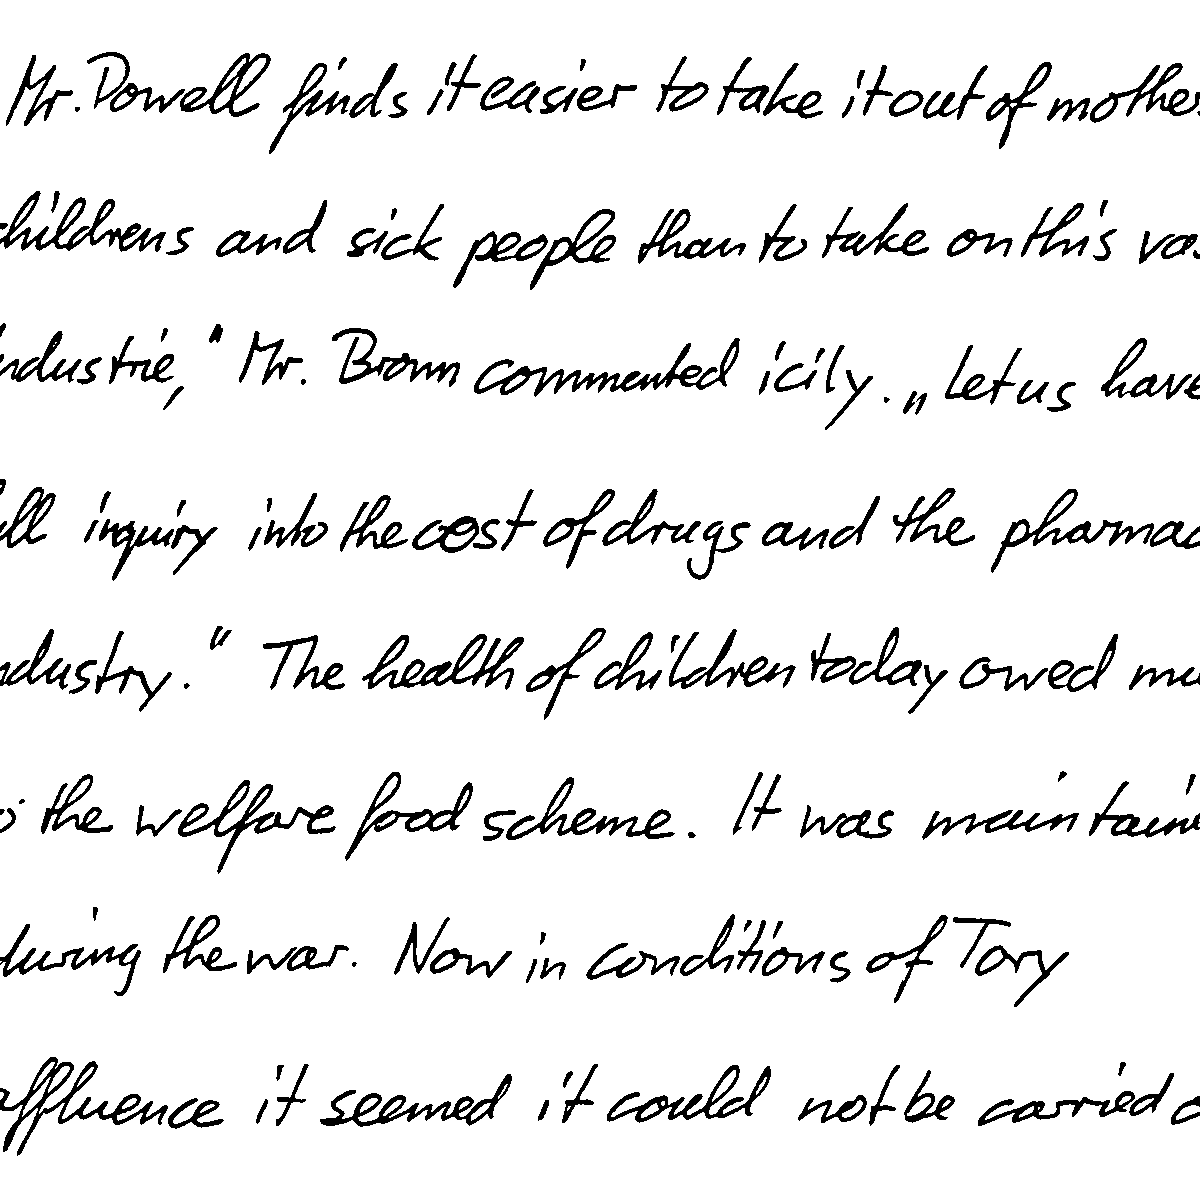 Mr. Powell finds it easier to take it out of mothers
childrens and sick people than to take on this vas
industrie," Mr. Brown commented icily. „Let us have
full inquiry into the cost of drugs and the pharmac
industry." The health of children today owed mu
to the welfare food scheme. It was maintaine
during the war. Now in conditions of Tory
affluence it seemed it could not be carried o